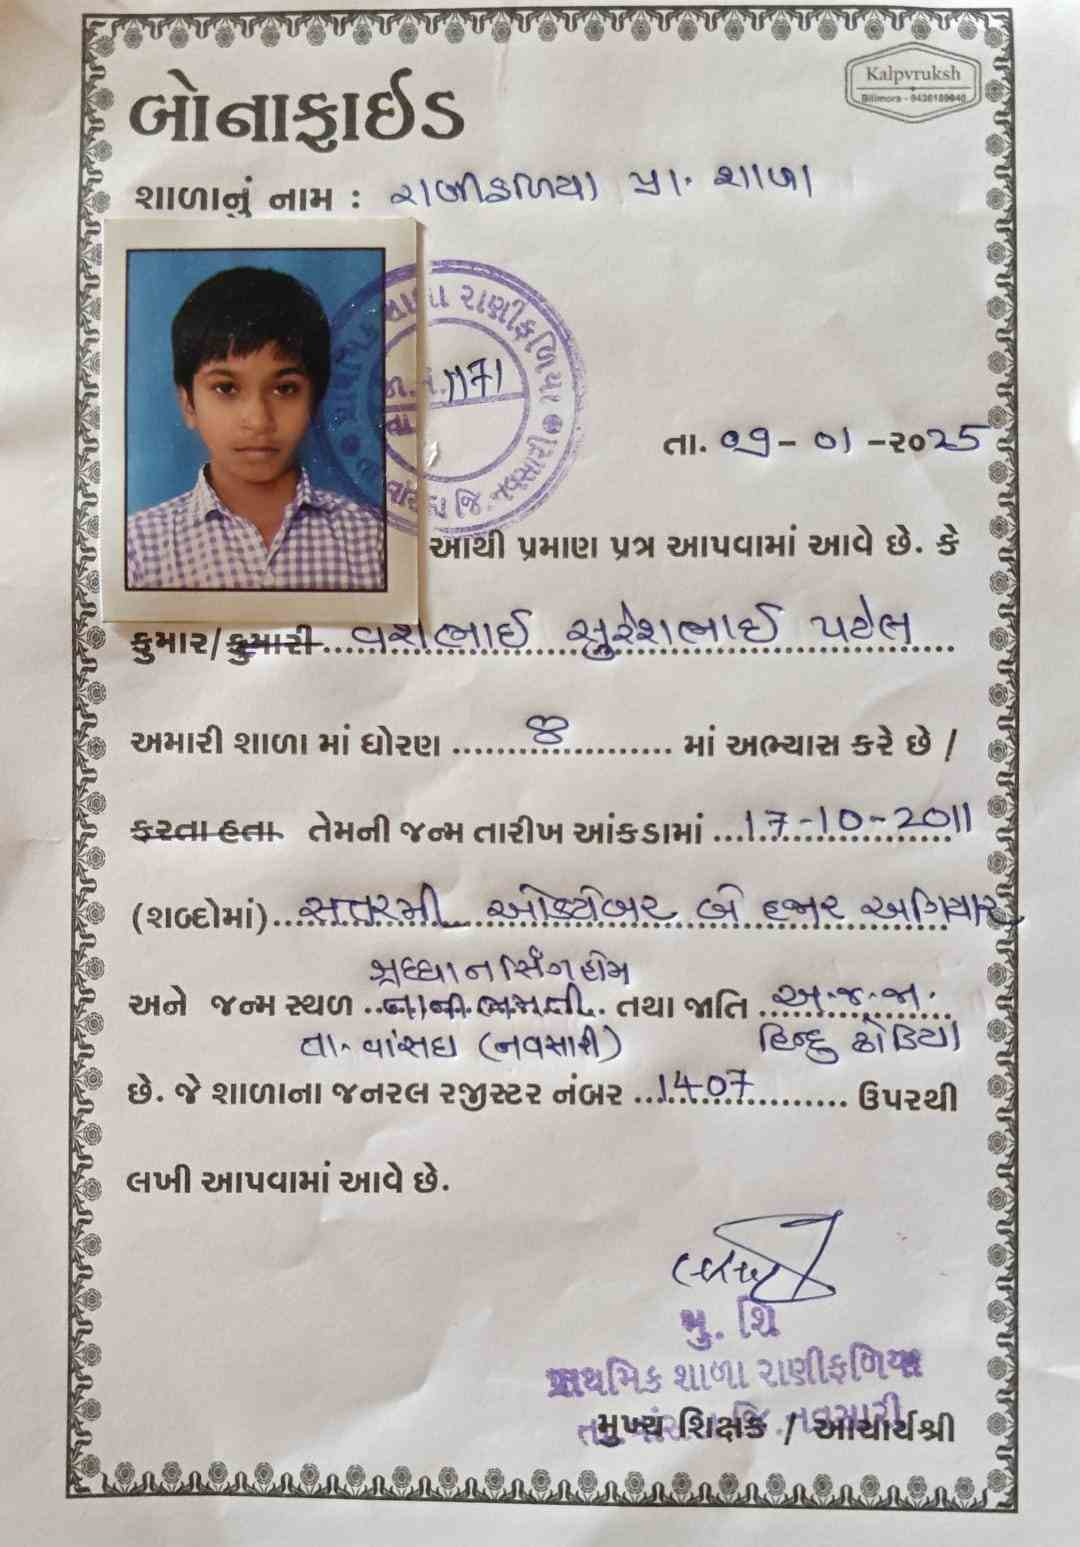 Kalpvruksh
Bilimora - 9426189840
બોનાફાઈડ
શાળાનું નામ : રાણીફળિયા પ્રા. શાળા
શાળા રાણીફળિયા
જા.નં. 1171
તા
જિ. નવસારી
તા. 09-01-૨૦25
આથી પ્રમાણ પત્ર આપવામાં આવે છે. કે
કુમાર/કુમારી વંશભાઈ સુરેશભાઈ પટેલ
અમારી શાળા માં ધોરણ ૭ માં અભ્યાસ કરે છે /
કરતા હતા. તેમની જન્મ તારીખ આંકડામાં 17-10-2011
(શબ્દોમાં) સત્તરમી ઓક્ટોબર બે હજાર અગિયાર
શ્રધ્ધા નર્સિંગ હોમ
અને જન્મ સ્થળ નાની ભમતી. તથા જાતિ અ.જ.જા.
તા. વાંસદા (નવસારી) હિન્દુ ઢોડિયા
છે. જે શાળાના જનરલ રજીસ્ટર નંબર 1407 ઉપરથી
લખી આપવામાં આવે છે.
મુ. શિ
પ્રાથમિક શાળા રાણીફળિયા
જિ. નવસારી
મુખ્ય શિક્ષક / આચાર્યશ્રી